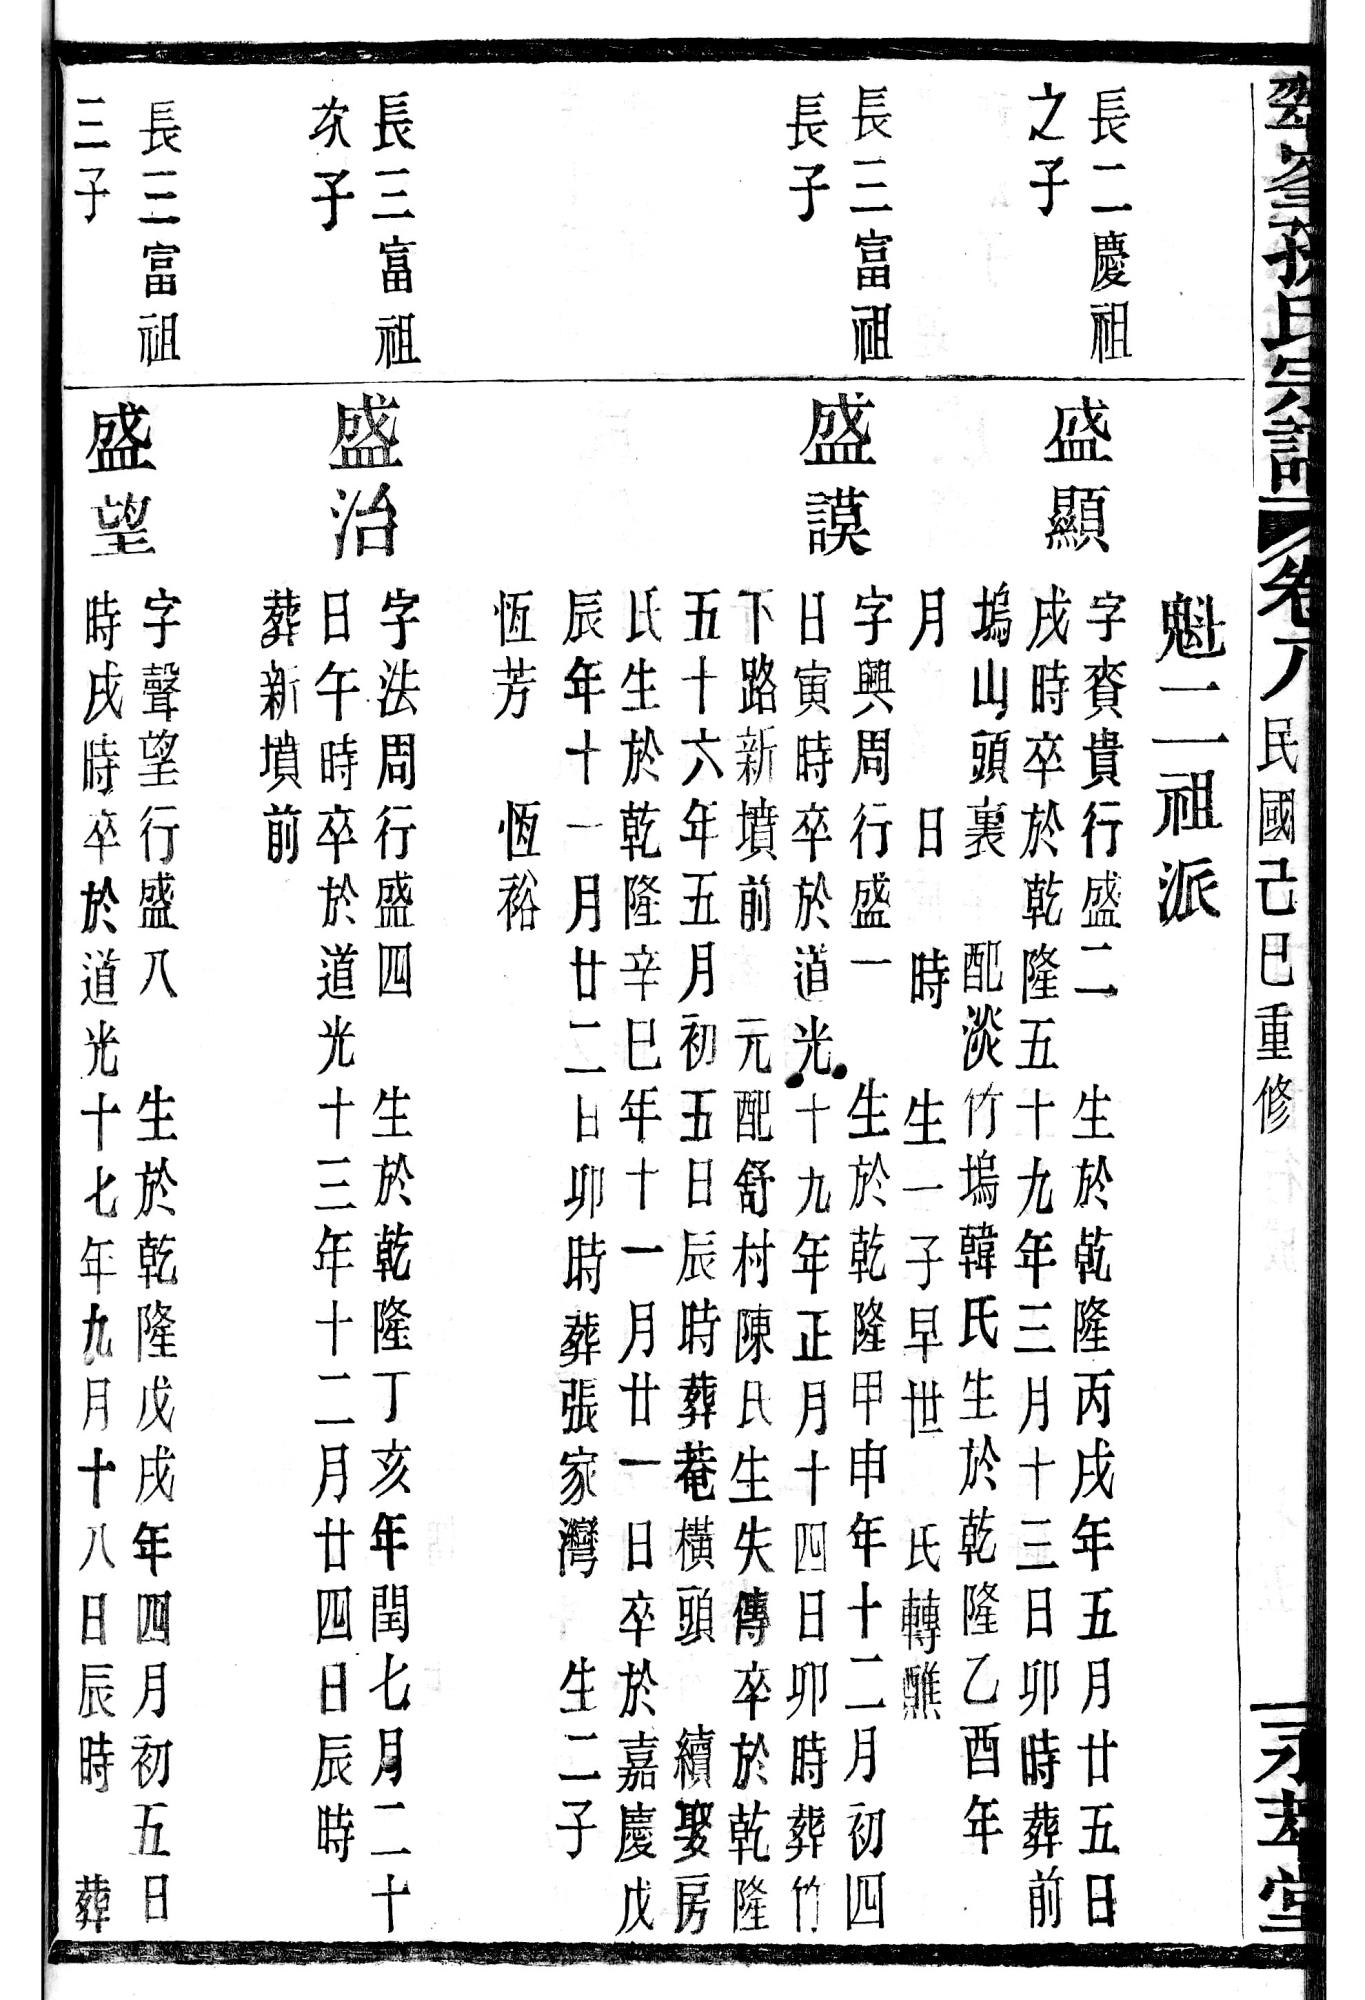 孫氏宗譜 卷八 民國己巳重修
永萃堂
魁二祖派
長二慶祖
之子
盛顯
字賚貴行盛二 生於乾隆丙戌年五月廿五日
戌時卒於乾隆五十九年三月十三日卯時葬前
塢山頭裏 配淡竹塢韓氏生於乾隆乙酉年
月 日 時 生一子早世 氏轉醮
長三富祖
長子
盛謨
字興周行盛一 生於乾隆甲申年十二月初四
日寅時卒於道光十九年正月十四日卯時葬竹
下路新墳前 元配舒村陳氏生失傳卒於乾隆
五十六年五月初五日辰時葬菴橫頭 續娶房
氏生於乾隆辛巳年十一月廿一日卒於嘉慶戊
辰年十一月廿二日卯時葬張家灣 生二子
恆芳 恆裕
長三富祖
次子
盛治
字法周行盛四 生於乾隆丁亥年閏七月二十
日午時卒於道光十三年十二月廿四日辰時
葬新墳前
長三富祖
三子
盛望
字聲望行盛八 生於乾隆戊戌年四月初五日
時戌時卒於道光十七年九月十八日辰時 葬